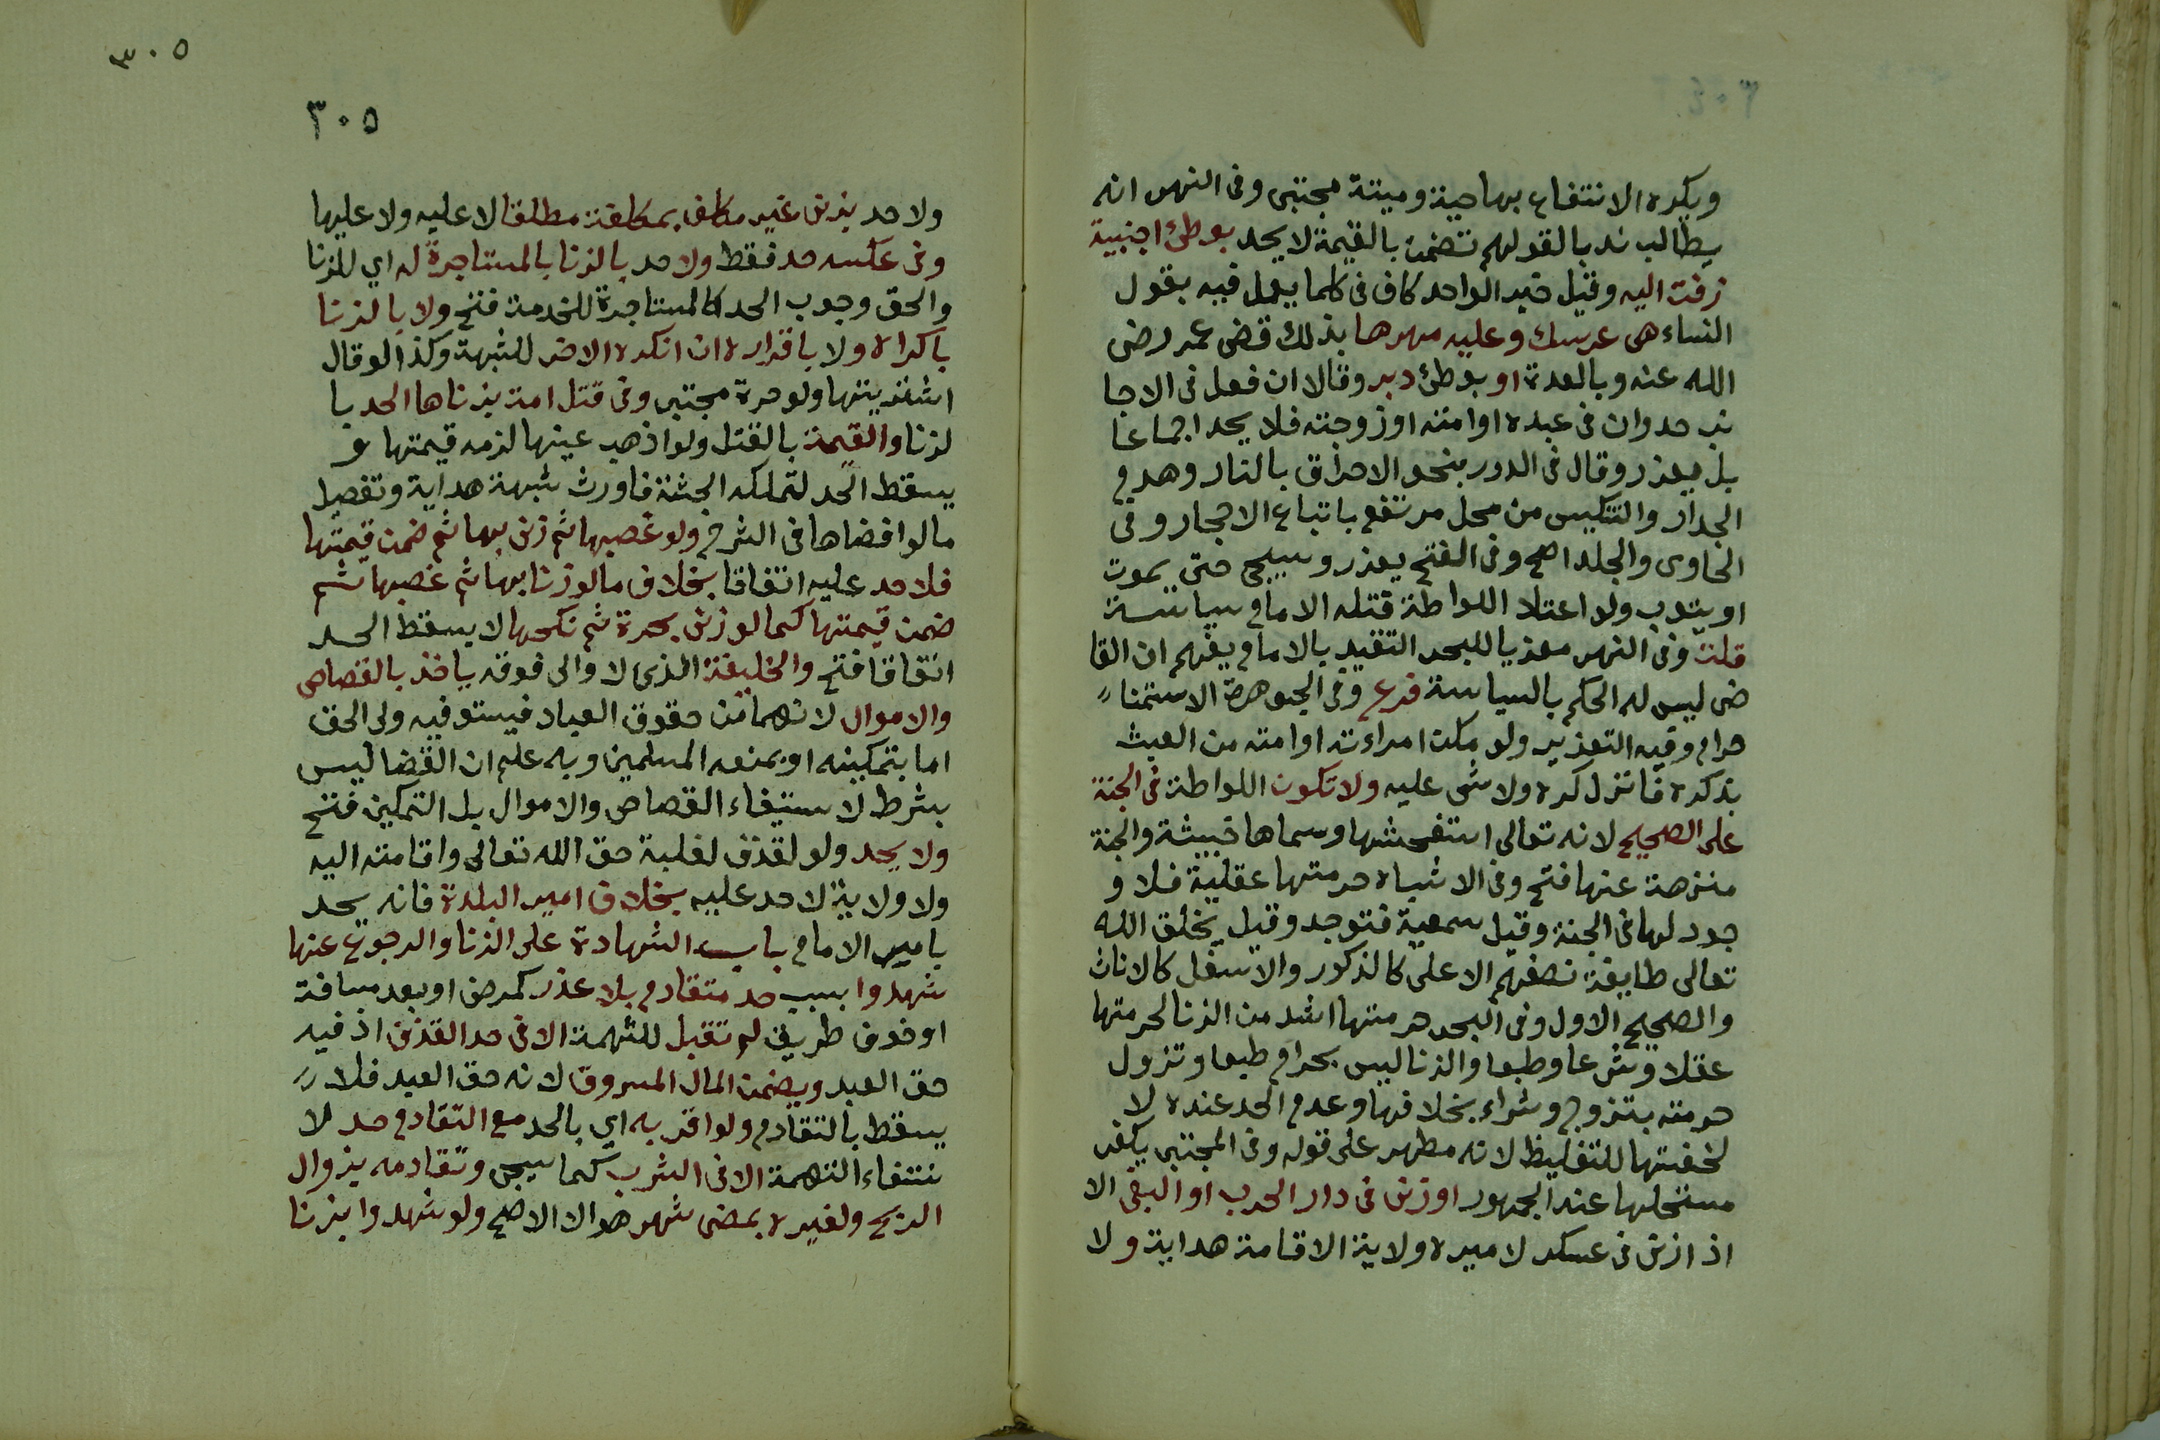 ويكره الانتفاع بها حية وميتة مجتبى وفى النهر انه
يطالب ندبا لقولهم تضمن بالقيمة لا يحد بوطئ اجنبية
زفت اليه وقيل خبر الواحد كاف فى كلما يعمل فيه بقول
النساء هى عرسك وعليه مهرها بذلك قضى عمر رضى
الله عنه وبالعدة او بوطئ دبر وقالا ان فعل فى الاجا
نب حد وان فى عبده او امته او زوجته فلا يحد اجماعا
بل يعزر وقال فى الدرر بنحو الاحراق بالنار وهدم
الجدار والتنكيس من محل مرتفع باتباع الاحجار وفى
الحاوى والجلد اصح وفى الفتح يعزر ويسجن حتى يموت
او يتوب ولو اعتاد اللواطة قتله الامام سياسة
قلت وفى النهر معزيا للبحر التقييد بالامام يفهم ان القا
ضى ليس له الحكم بالسياسة فرع وفى الجوهرة الاستمناء
حرام وفيه التعزير ولو مكن امراءته او امته من العبث
بذكره فانزل كره ولا شى عليه ولا تكون اللواطة فى الجنة
على الصحيح لانه تعالى استقبحشها وسماها خبيثة والجنة
منزهة عنها فتح وفى الاشباه حرمتها عقلية فلا و
جود لها فى الجنة وقيل سمعية فتوجد وقيل يخلق الله
تعالى طايفة نصفهم الاعلى كالذكور والاسفل كالاناث
والصحيح الاول وفى البحر حرمتها اشد من الزنا لحرمتها
عقلا وشرعا وطبعا والزنا ليس بحرام طبعا وتزول
حرمته بتزوج وشراء بخلافها وعدم الحد عنده لا
لخفتها للتغليظ لانه مطهر على قوله وفى المجتبى يكفر
مستحلها عند الجمهور او زنى فى دار الحرب او البغى الا
اذ ازنى فى عسكر لاميره ولاية الاقامة هداية ولا
٣٠٥
٣٠٥
ولا حد بزنى غير مكلف بمكلفة مطلقا لا عليه ولا عليها
وفى عكسه حد فقط ولا حد بالزنا بالمستاجرة له اي للزنا
والحق وجوب الحد كالمستاجرة للخدمة فتح ولا بالزنا
باكراه ولا باقراره ان انكره الاخر للشبهة وكذا لو قال
اشتريتها ولو حرة مجتبى وفى قتل امة بزناها الحد با
لزنا والقيمة بالقتل ولو اذهب عينها لزمه قيمتها و
يسقط الحد لتملكه الجثة فاورث شبهة هداية وتفصيل
مالو افضاها فى الشرح ولو غصبها ثم زنى بها ثم ضمن قيمتها
فلا حد عليه اتفاقا بخلاف مالو زنا بها ثم غصبها ثم
ضمن قيمتها كما لو زنى بحرة ثم نكحها لا يسقط الحد
اتفاقا فتح والخليفة الذى لا والى فوقه ياخذ بالقصاص
والاموال لانهما من حقوق العباد فيستوفيه ولى الحق
اما بتمكينه او بمنعه المسلمين وبه علم ان القضا ليس
بشرط لاستيفاء القصاص والاموال بل التمكين فتح
ولا يحد ولو لقذف لغلبة حق الله تعالى واقامته اليه
ولا ولاية لاحد عليه بخلاف امير البلدة فانه يحد
بامر الامام باب الشهادة على الزنا والرجوع عنها
شهدوا بسبب حد متقادم بلا عذر كمرض او بعد مسافة
او خوف طريق لم تقبل للتهمة الا فى حد القذف اذ فيه
حق العبد ويضمن المال المسروق لانه حق العبد فلا
يسقط بالتقادم ولو اقر به اي بالحد مع التقادم حد لا
نتفاء التهمة الا فى الشرب كما سيجى وتقادمه بزوال
الريح ولغيره بمضى شهر هو الا الاصح ولو شهدوا بزنا